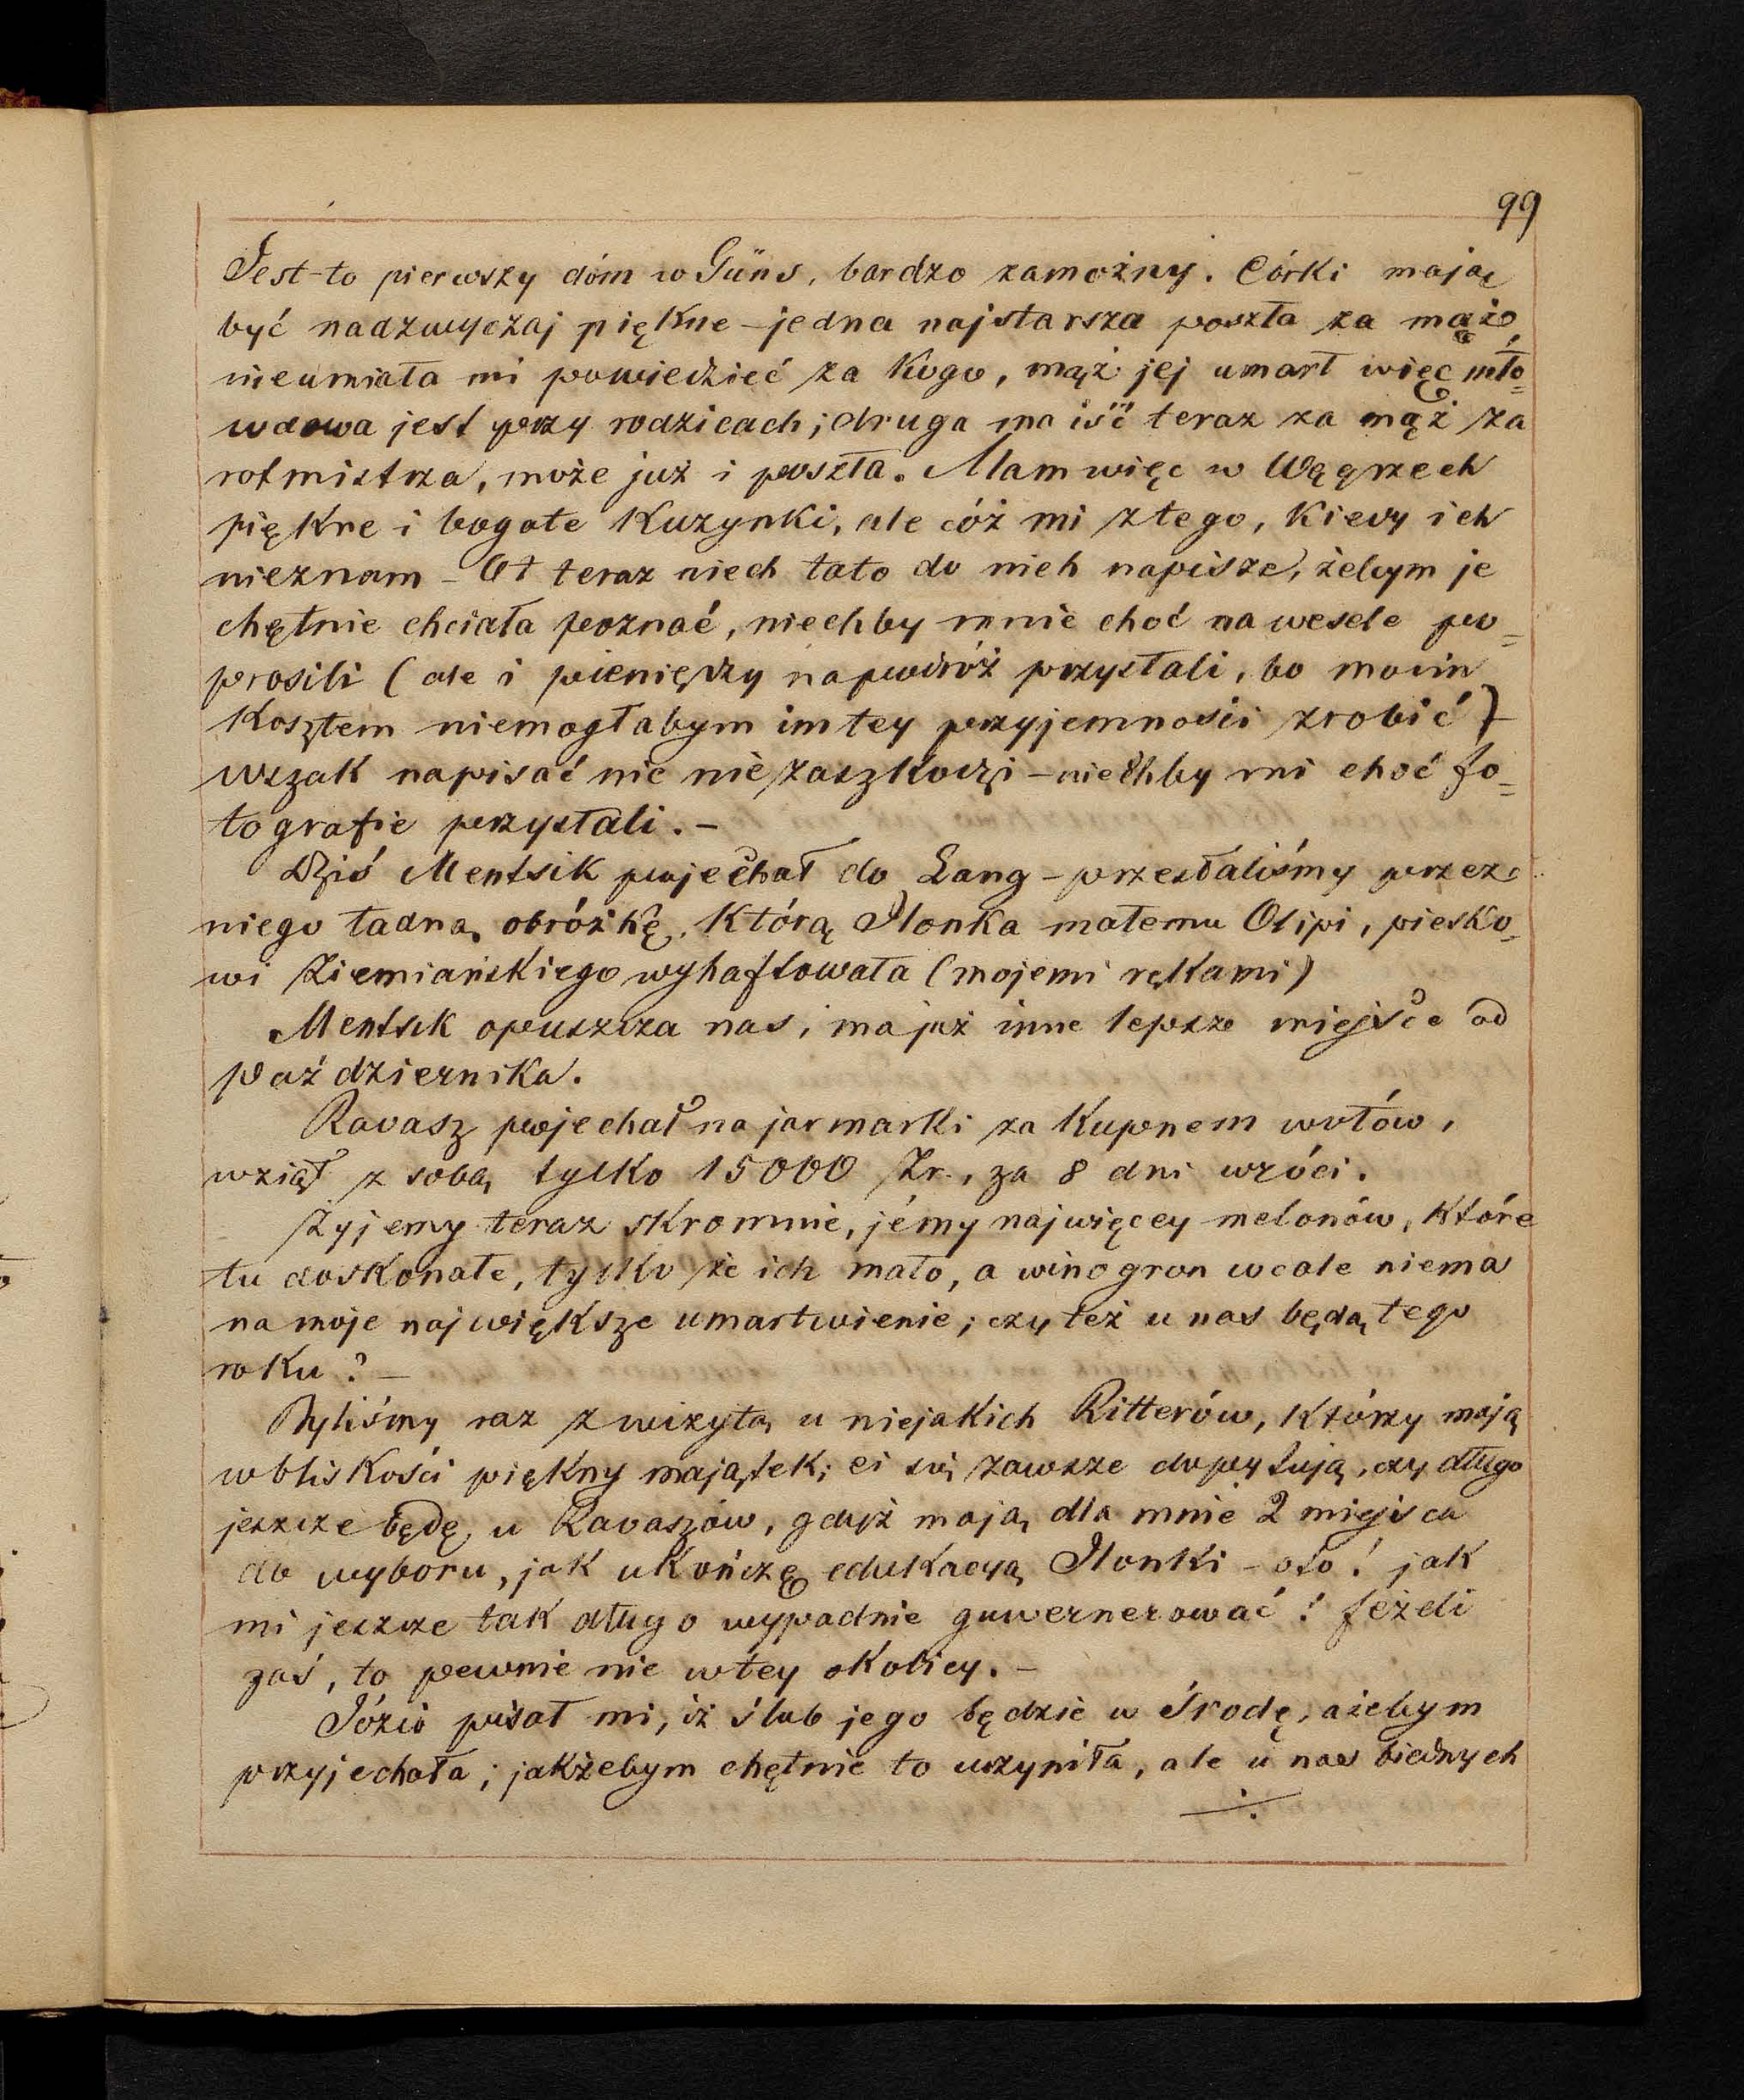 99
Jest-to pierwszy dóm w Güns, bardzo zamożny. Córki mają
być nadzwyczaj piękne – jedna najstarsza poszła za mąż,
nieumiała mi powiedzieć za kogo, mąż jej umarł więc mło=
wdowa jest przy rodzicach; druga ma iść teraz za mąż za
rotmistrza, może już i poszła. Mam więc w Węgrzech
piękne i bogate kuzynki, ale cóż mi z tego, kiedy ich
nieznam – Ot teraz niech tato do nich napisze, żebym je
chętnie chciała poznać, niechby mnie choć na wesele po=
prosili (ale i pieniędzy na podróż przysłali, bo moim
kosztem niemogłabym im tey przyjemności zrobić) –
wszak napisać nic nie zaszkodzi – niechby mi choć fo=
tografie przysłali. –
Dziś Mentsik pojechał do Lang – przesłaliśmy przez
niego ładną obróżkę, którą Ilonka małemu Olipi, piesko=
wi Ziemiańskiego wyhaftowała (mojemi rękami)
Mentsik opuszcza nas, ma już inne lepsze miejsce od
października.
Ravasz pojechał na jarmarki za kupnem wołów,
wziął z sobą tylko 15000 Zr., za 8 dni wróci.
Żyjemy teraz skromnie, jémy najwięcey melonów, które
tu doskonałe, tylko że ich mało, a winogron wcale niema
na moje największe umartwienie; czy też u nas będą tego
roku? –
Byliśmy raz z wizytą u niejakich Ritterów, którzy mają
w bliskości piękny majątek; ci się zawsze dopytują, czy długo
jeszcze będę u Ravaszów, gdyż mają dla mnie 2 miejsca
do wyboru, jak ukończę edukacyą Ilonki – oto! jak
mi jeszcze tak długo wypadnie guwernerować! Jeżeli
zaś, to pewnie nie w tey okolicy. –
Józio pisał mi, iż ślub jego będzie w Środę, ażebym
przyjechała; jakżebym chętnie to uczyniła, ale u nas biednych